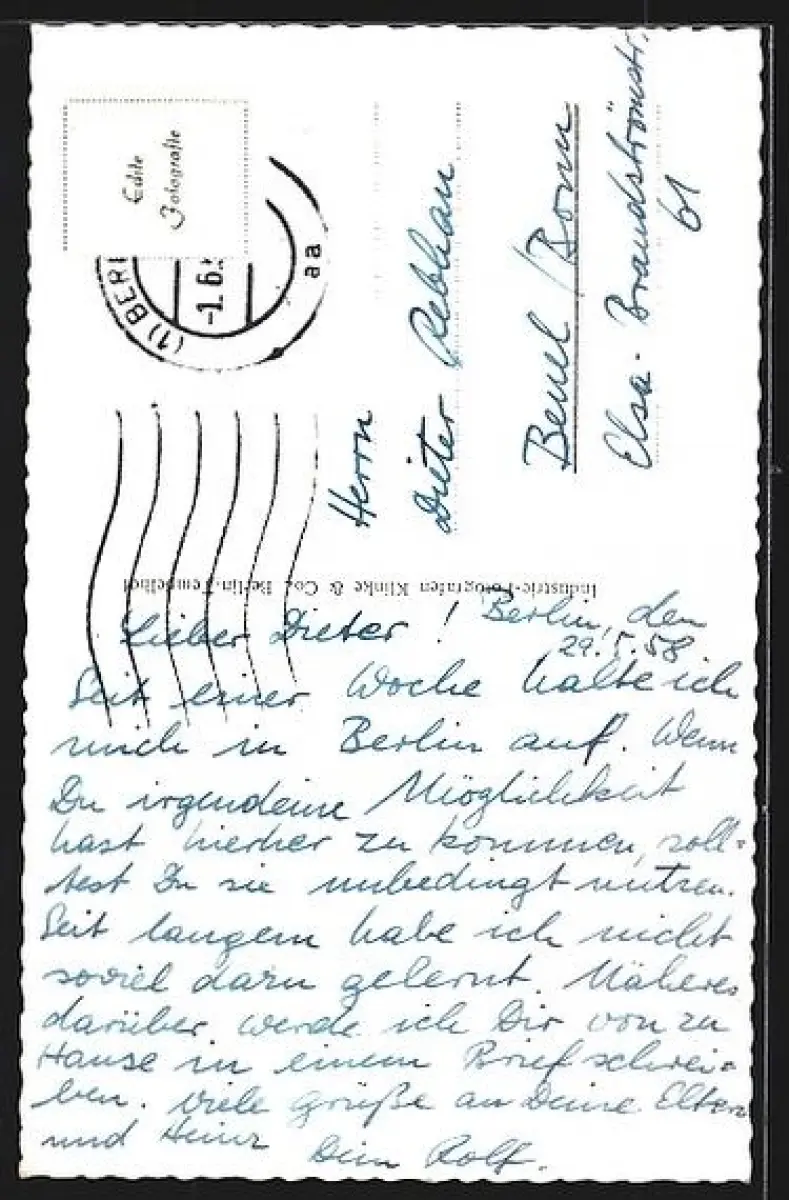 Echte
Fotografie
(1) BERL
-1.6.5
aa
Herrn
Dieter Rebhan
Beuel / Bonn
Elsa-Brandströmstr.
61
Industrie-Fotografen Klinke & Co., Berlin-Tempelhof
Berlin, den
29.5.58
Lieber Dieter!
Seit einer Woche halte ich
mich in Berlin auf. Wenn
Du irgendeine Möglichkeit
hast hierher zu kommen, soll-
test Du sie unbedingt nutzen.
Seit langem habe ich nicht
soviel dazu gelernt. Näheres
darüber werde ich Dir von zu
Hause in einem Brief schrei-
ben. Viele Grüße an Deine Eltern
und Heinz Dein Rolf.